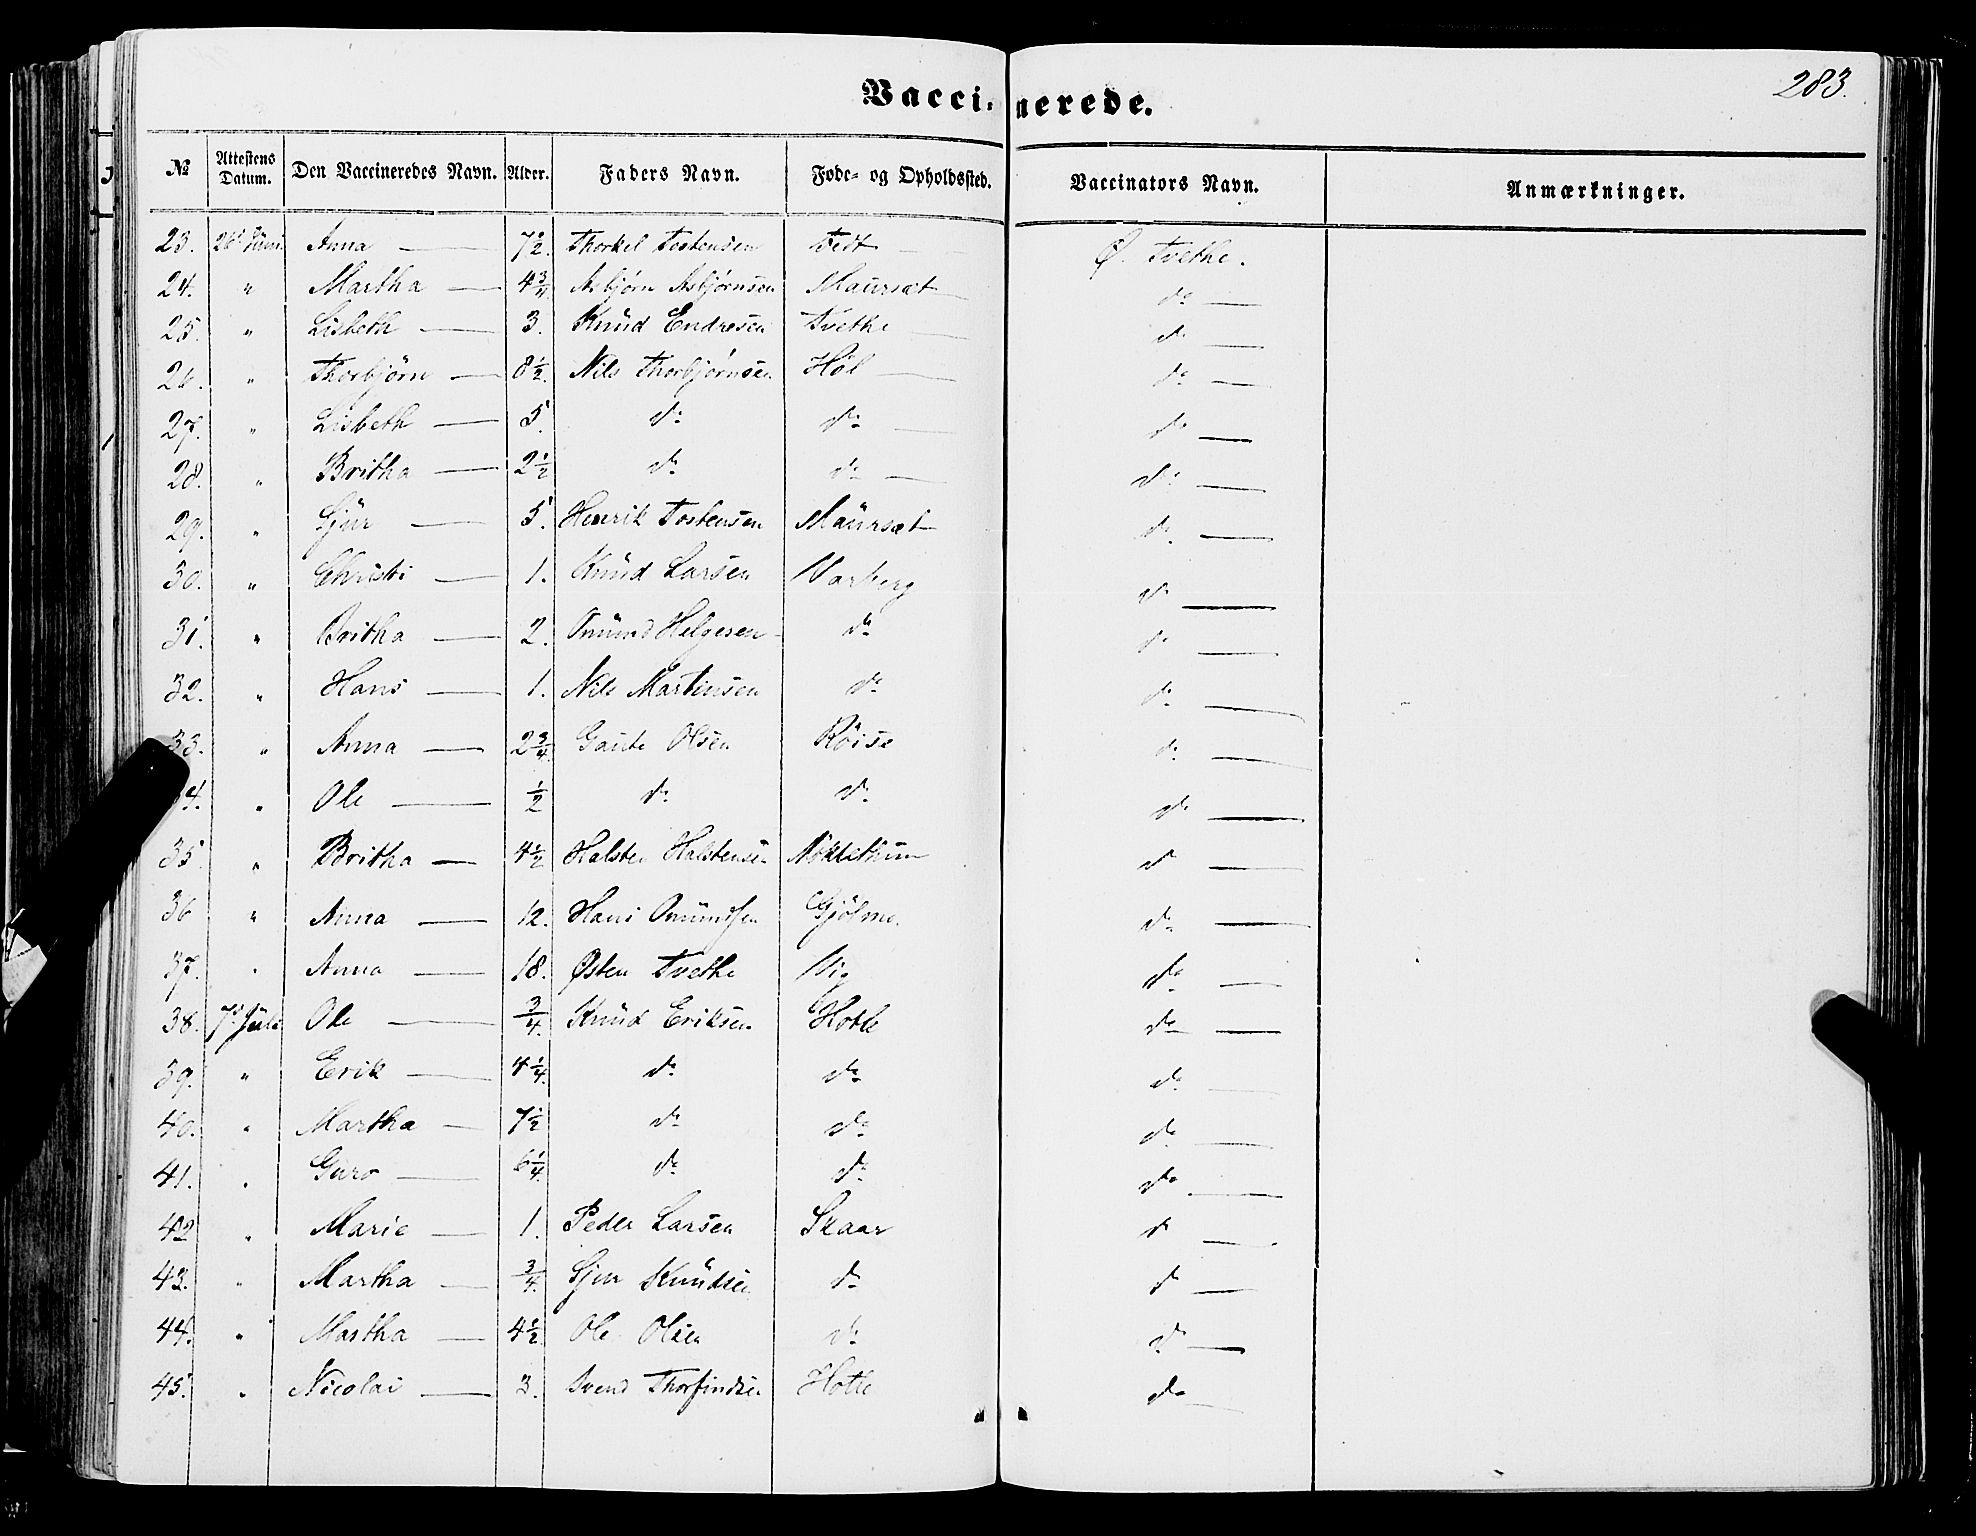 283.
Vaccinerede.
№ Attestens Datum. Den Vaccineredes Navn. Alder. Faders Navn. Føde- og Opholdssted. Vaccinators Navn. Anmærkninger.
23. 26d Juni Anna — 7½. Thorkel Tostensen Tedt — Ø. Tvethe.
24. " Martha — 4¾. Asbjørn Asbjørnsen Maursæt — do —
25. " Lisbeth — 3. Knud Endresen Tvethe — do —
26. " Thorbjørn — 8½. Nils Thorbjørnsen Høl — do —
27. " Lisbeth — 5. do do — do —
28. " Britha — 2½ do do — do —
29. " Sjur — 5. Henrik Tostensen Maursæt do —
30. " Christi — 1. Knud Larsen Varberg do —
31. " Britha — 2. Onund Helgesen do do —
32. " Hans — 1. Nils Martinsen do do —
33. " Anna — 2¾. Gaute Olsen Røise do —
34. " Ole — ½ do do do —
35. " Britha — 4½ Halsten Halstensen Nøklethun do —
36 " Anna — 12. Hans Onundsen Gjølme. do —
37. " Anna — 18. Østen Tvethe Vig do —
38. 7d Juli Ole — ¾. Knud Eriksen Hotle do —
39. " Erik — 4¼. do do do —
40. " Martha — 7½ do do do —
41. " Guro — 6¼. do do do —
42 " Marie — 1. Peder Larsen Skaar do —
43. " Martha — ¾. Sjur Knudsen do do —
44. " Martha — 4½. Ole Olsen do do —
45. " Nicolai — 3. Svend Thorfindsen Hotle do —